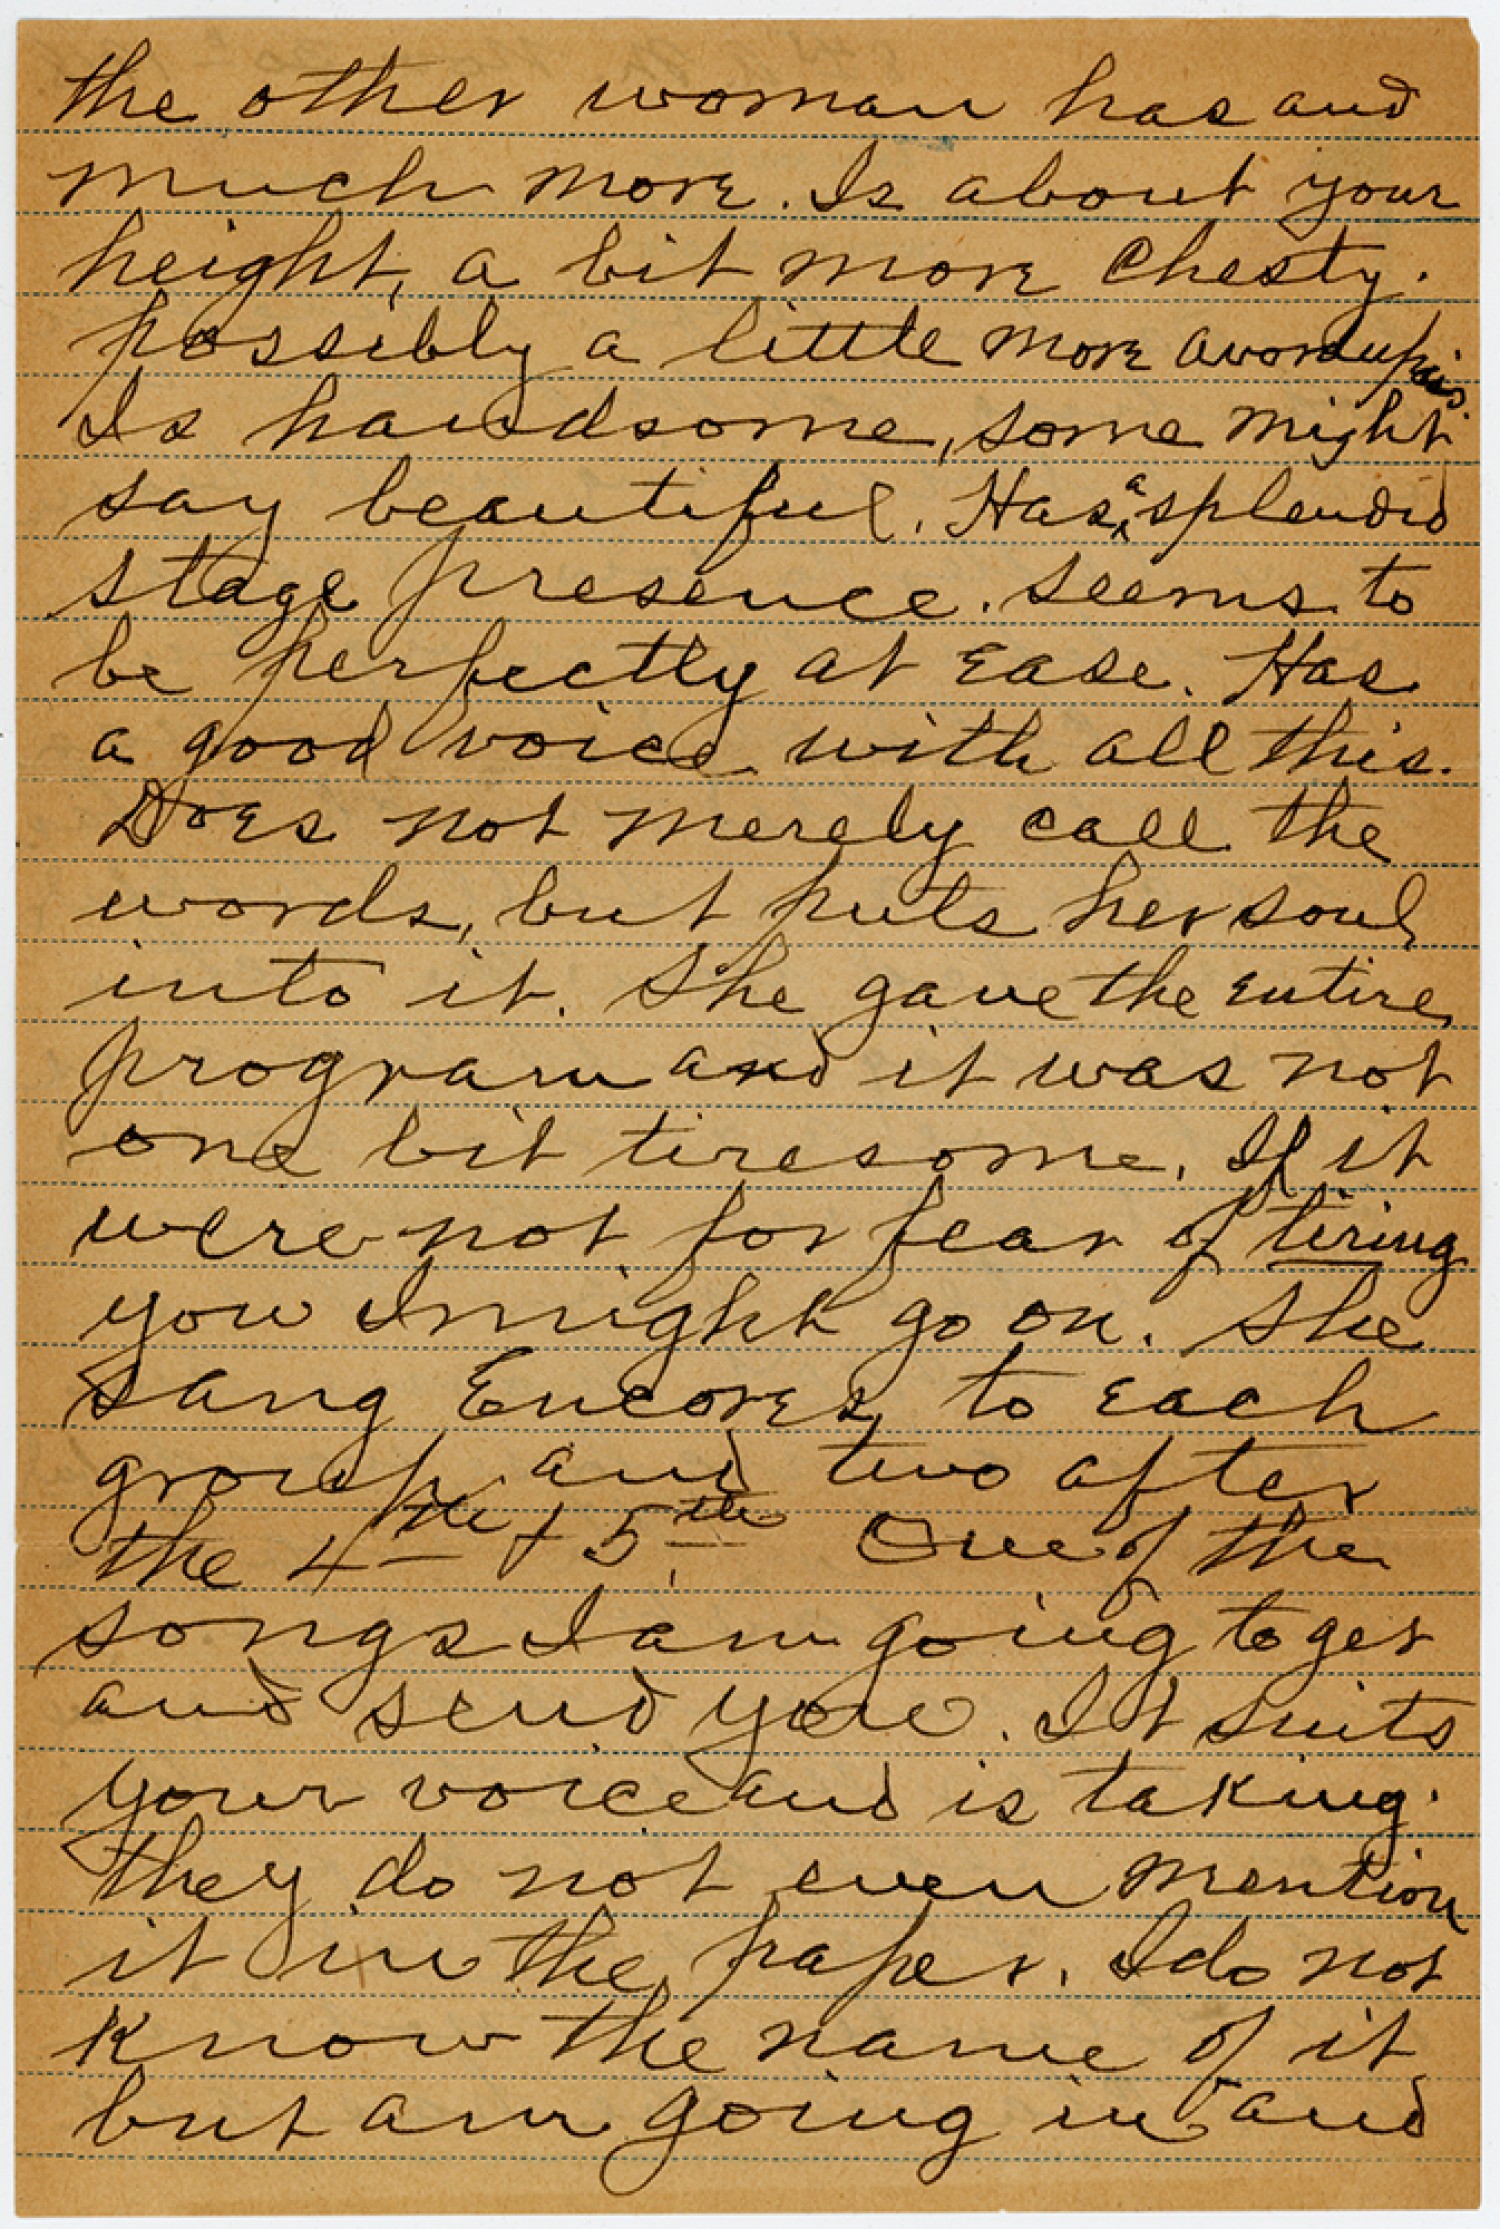 the other woman has and
much more. Is about your
height, a bit more chesty.
possibly a little more avordupois.
Is handsome, some might
say beautiful. Has a splendid
stage presence. seems to
be perfectly at ease. Has
a good voice with all this.
Does not merely call the
words, but puts her soul
into it. She gave the entire
program and it was not
one bit tiresome. If it
were not for fear of tiring
you I might go on. She
sang Encores to each
group and two after
the 4th + 5th One of the
songs I am going to get
and send you. It suits
your voice and is taking.
they do not even mention
it in the paper. I do not
know the name of it
but am going in and